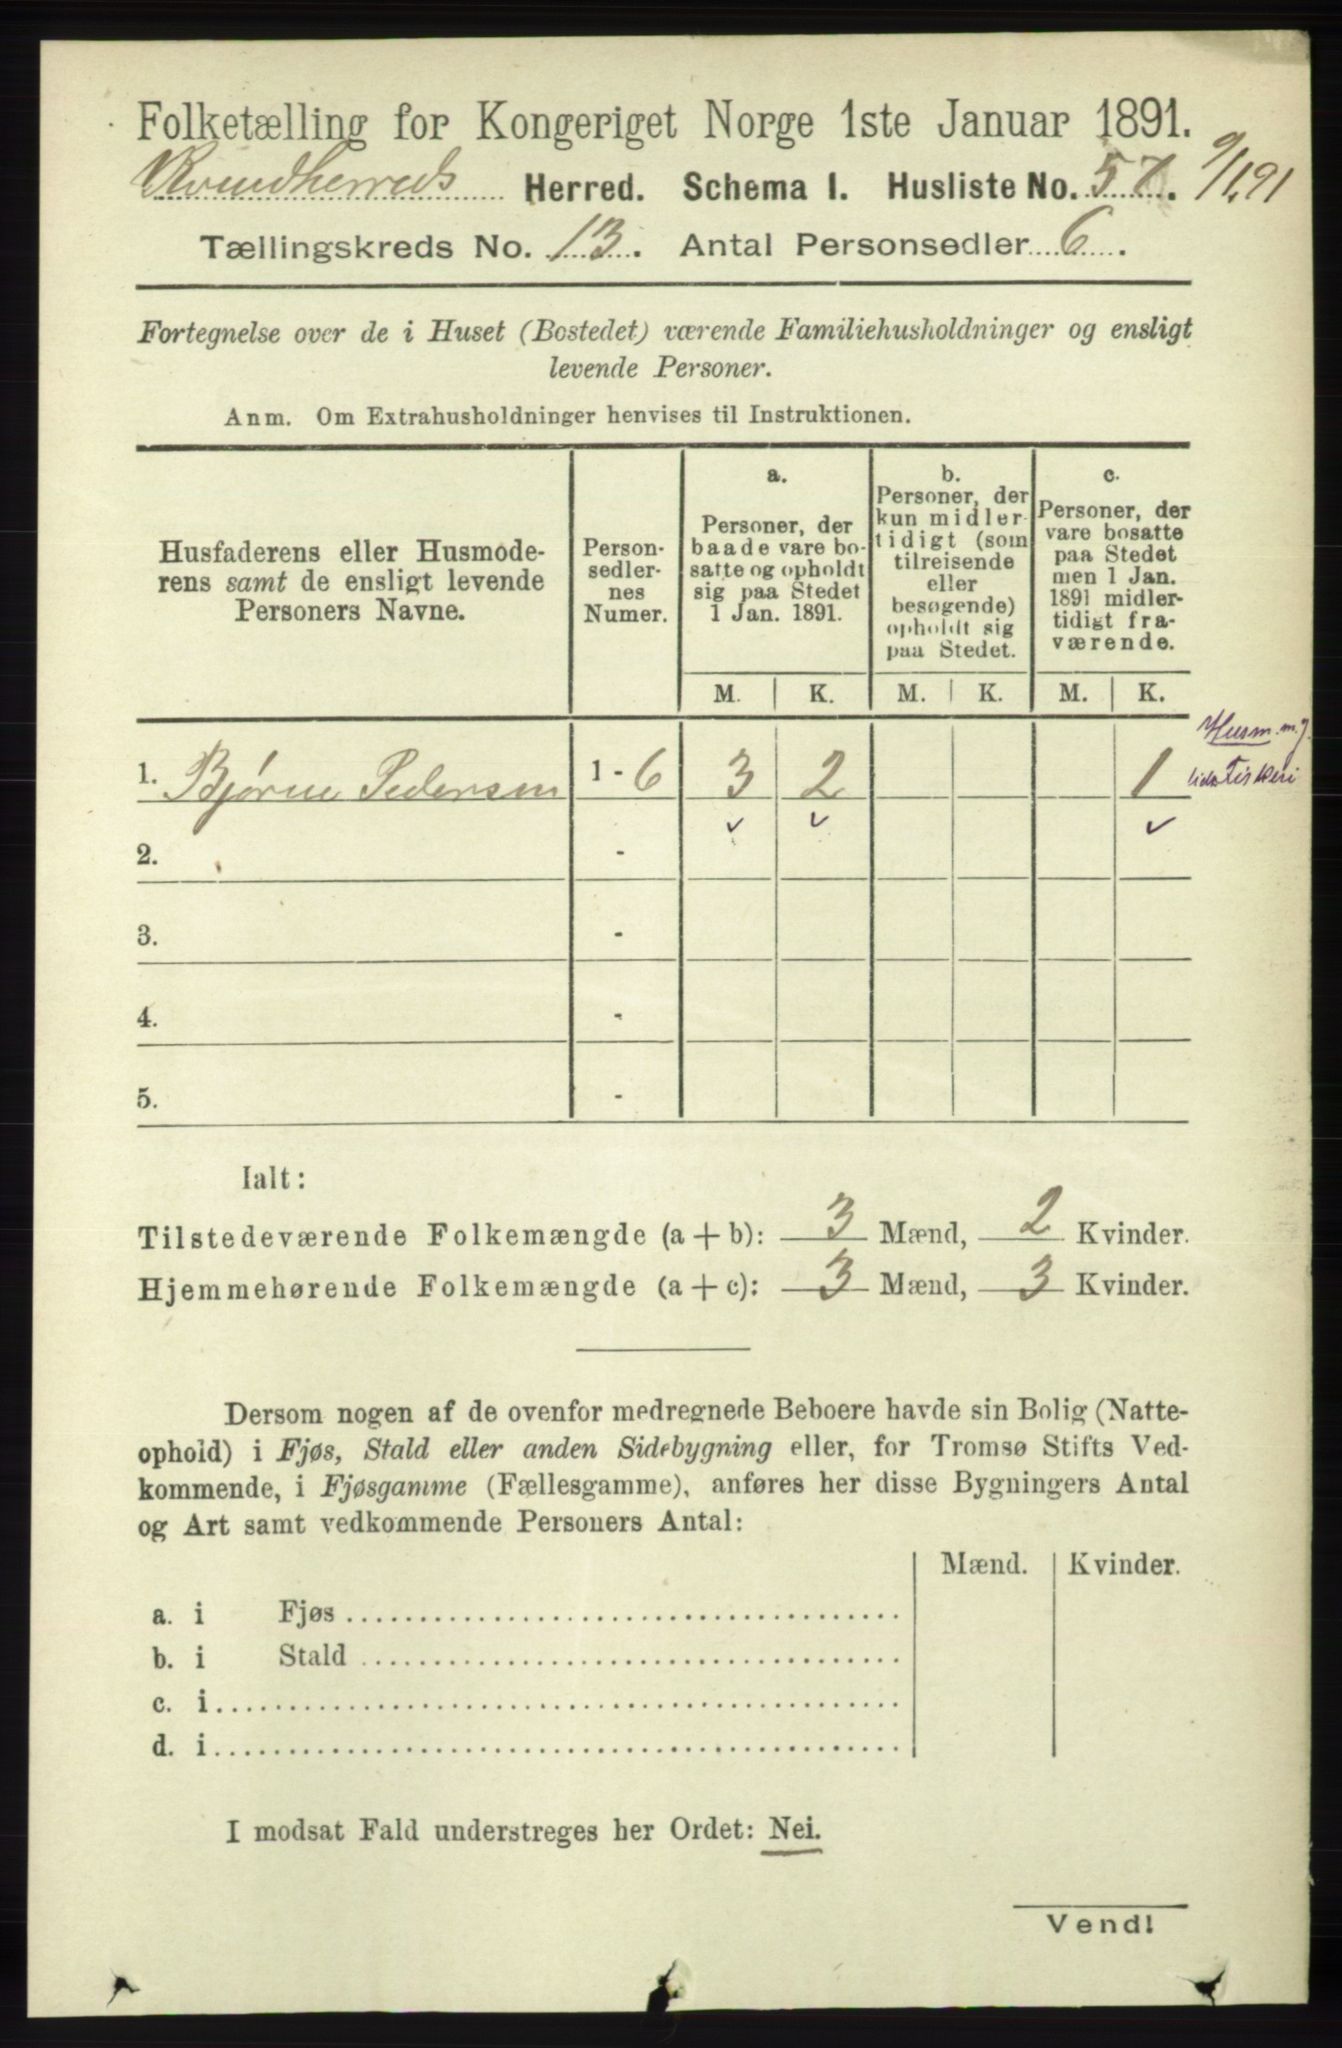 Folketælling for Kongeriget Norge 1ste Januar 1891.
Kvindherreds Herred. Schema 1. Husliste No. 57. 9/1.91
Tællingskreds No. 13. Antal Personsedler 6.
Fortegnelse over de i Huset (Bostedet) værende Familiehusholdninger og ensligt
levende Personer.
Anm. Om Extrahusholdninger henvises til Instruktionen.
Husfaderens eller Husmode-
rens samt de ensligt levende
Personers Navne.
Person-
sedler-
nes
Numer.
a.
Personer, der
baade vare bo-
satte og opholdt
sig paa Stedet
1 Jan. 1891.
b.
Personer, der
kun midler-
tidigt (som
tilreisende
eller
besøgende)
opholdt sig
paa Stedet.
c.
Personer, der
vare bosatte
paa Stedet
men 1 Jan.
1891 midler-
tidigt fra-
værende.
M. K. M. K. M. K.
1. Bjørne Pedersen 1-6 3 2 1
Husm. m. J.
lidt Fiskeri
2. -
3. -
4. -
5. -
Ialt:
Tilstedeværende Folkemængde (a+b): 3 Mænd, 2 Kvinder.
Hjemmehørende Folkemængde (a+c): 3 Mænd, 3 Kvinder.
Dersom nogen af de ovenfor medregnede Beboere havde sin Bolig (Natte-
ophold) i Fjøs, Stald eller anden Sidebygning eller, for Tromsø Stifts Ved-
kommende, i Fjøsgamme (Fællesgamme), anføres her disse Bygningers Antal
og Art samt vedkommende Personers Antal:
Mænd. Kvinder.
a. i Fjøs
b. i Stald
c. i
d. i
I modsat Fald understreges her Ordet: Nei.
Vend!